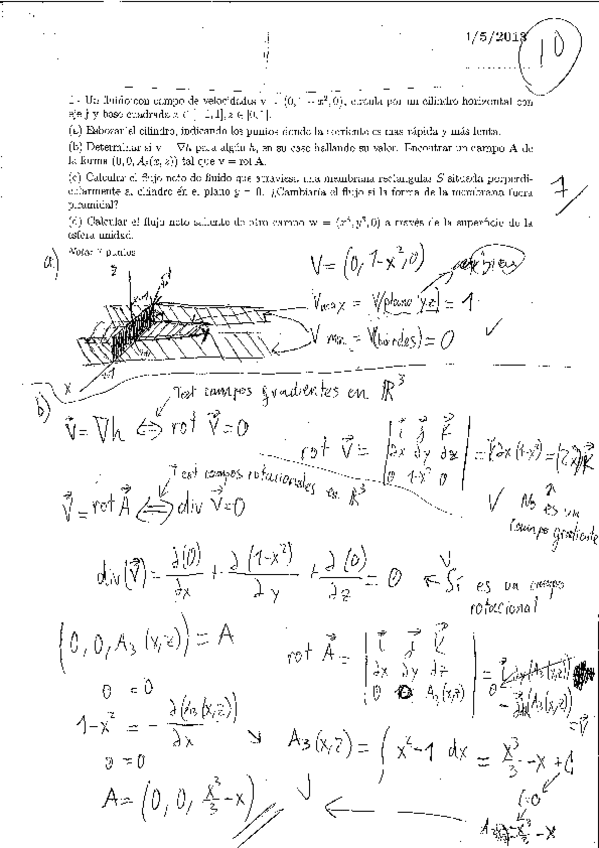 1/5/2013
10
1.- Un fluido con campo de velocidades v = (0, 1 − x², 0), circula por un cilindro horizontal con
eje j y base cuadrada x ∈ [−1, 1], z ∈ [0, 1].
(a) Esbozar el cilindro, indicando los puntos donde la corriente es mas rápida y más lenta.
(b) Determinar si v = ∇h para algún h, en su caso hallando su valor. Encontrar un campo A de
la forma (0, 0, A₃(x, z)) tal que v = rot A.
(c) Calcular el flujo neto de fluido que atraviesa una membrana rectangular S situada perpendi-
cularmente al cilindro en el plano y = 0. ¿Cambiaría el flujo si la forma de la membrana fuera
piramidal?
7
(d) Calcular el flujo neto saliente de otro campo w = (x³, y³, 0) a través de la superficie de la
esfera unidad.
Nota: 7 puntos
a)
V = (0, 1-x², 0)
z
V max = V(plano yz) = 1
y
V min = V(bordes) = 0 ✓
x
b)
Test campos gradientes en ℝ³
V⃗ = ∇h ⟺ rot V⃗ = 0
rot V⃗ = | i⃗ j⃗ k⃗ |
| ∂x ∂y ∂z | = k⃗ ∂x (1-x²) = (-2x) k⃗
| 0 1-x² 0 |
Test campos rotacionales en ℝ³
✓ No es un
campo gradiente
V⃗ = rot A⃗ ⟺ div V⃗ = 0
div(V⃗) = ∂(0)/∂x + ∂(1-x²)/∂y + ∂(0)/∂z = 0 ← Sí es un campo
rotacional
(0, 0, A₃(x,z)) = A
rot A⃗ = | i⃗ j⃗ k⃗ |
| ∂x ∂y ∂z | =
| 0 0 A₃(x,z) |
0 = 0
1-x² = - ∂(A₃(x,z))/∂x
0 = 0
A₃(x,z) = ∫ x²-1 dx = x³/3 - x + C
C=0
A = (0, 0, x³/3 - x) ✓
x³/3 - x